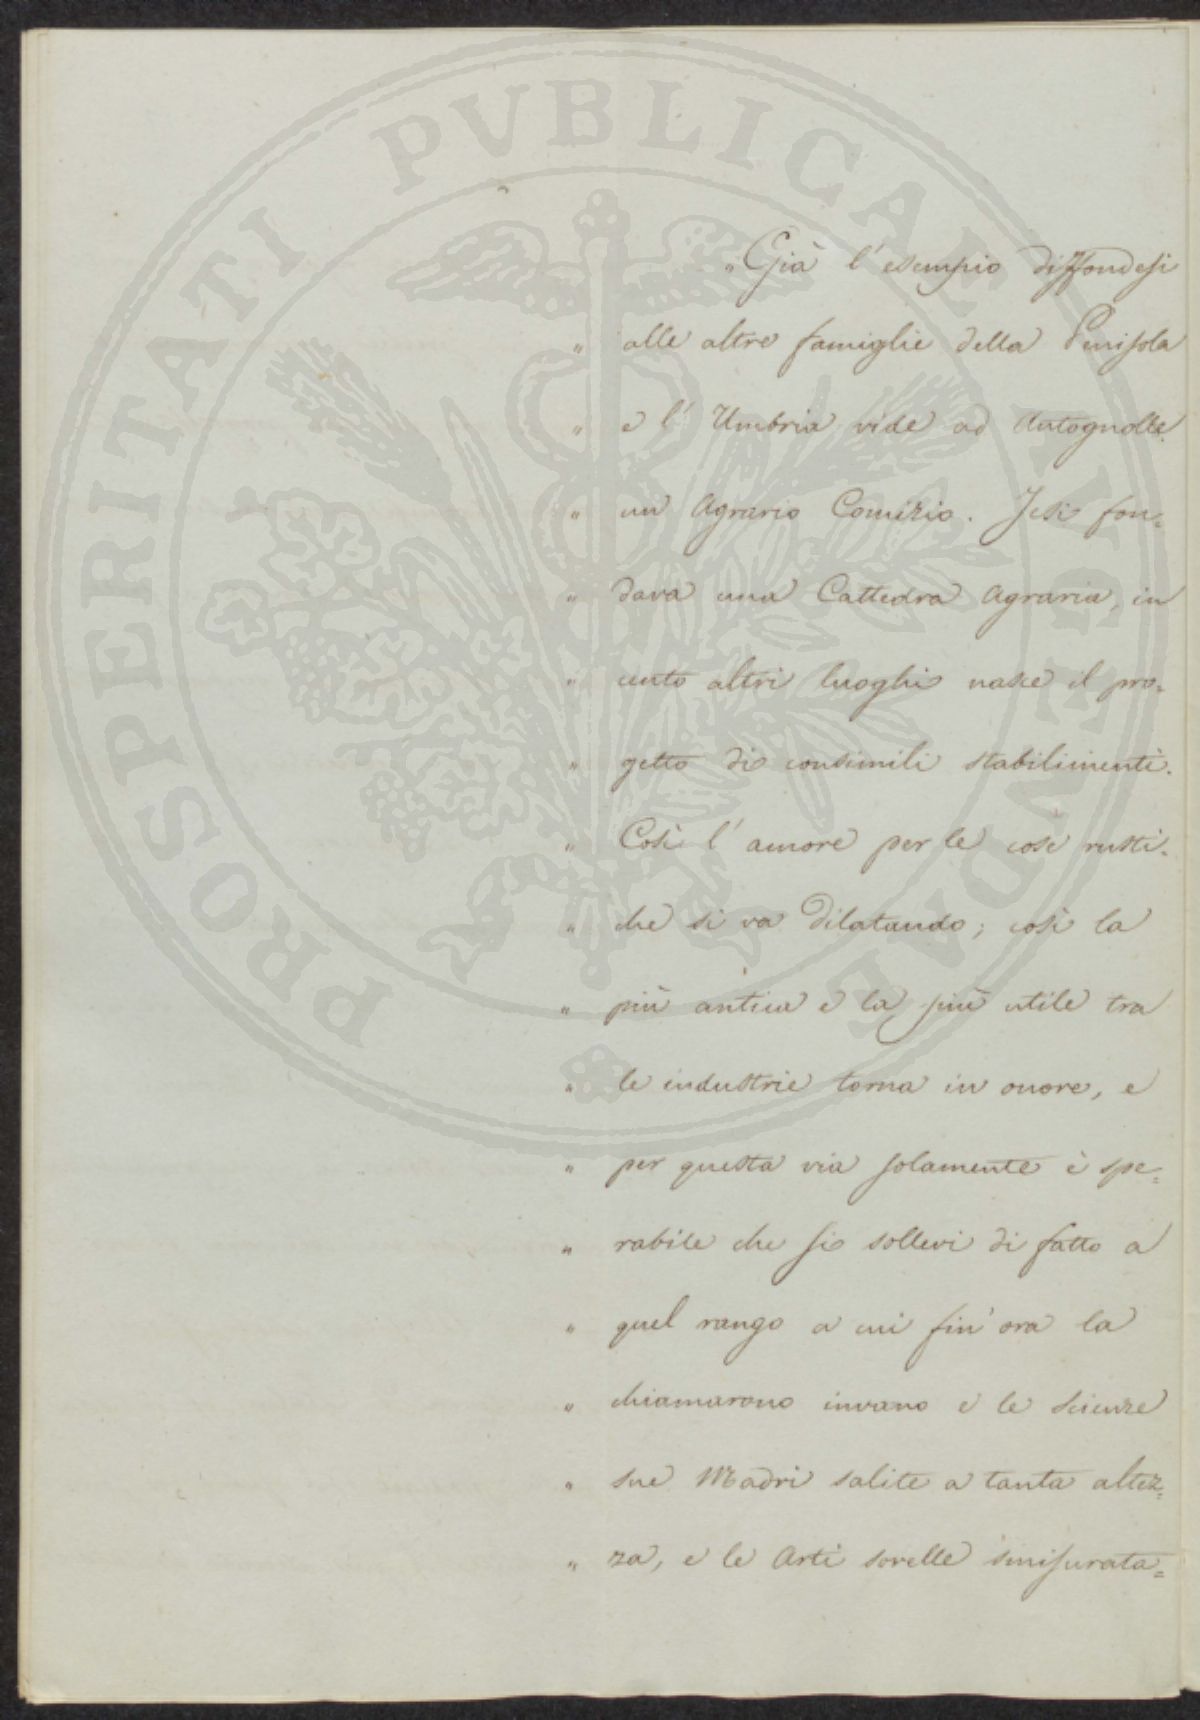 „ Già l'esempio diffondesi
„ alle altre famiglie della Penisola
„ e l'Umbria vide ad Antognolle
„ un Agrario Comizio. Jesi fon=
„ dava una Cattedra Agraria, in
„ cento altri luoghi nasce il pro=
„ getto di consimili stabilimenti.
„ Così l'amore per le cose rusti=
„ che si va dilatando; così la
„ più antica e la più utile tra
„ le industrie torna in onore, e
„ per questa via solamente è spe=
„ rabile che si sollevi di fatto a
„ quel rango a cui fin'ora la
„ chiamarono invano e le scienze
„ sue Madri salite a tanta altez=
„ za, e le Arti sorelle smisurata=
PROSPERITATI PVBLICAE AVGENDAE